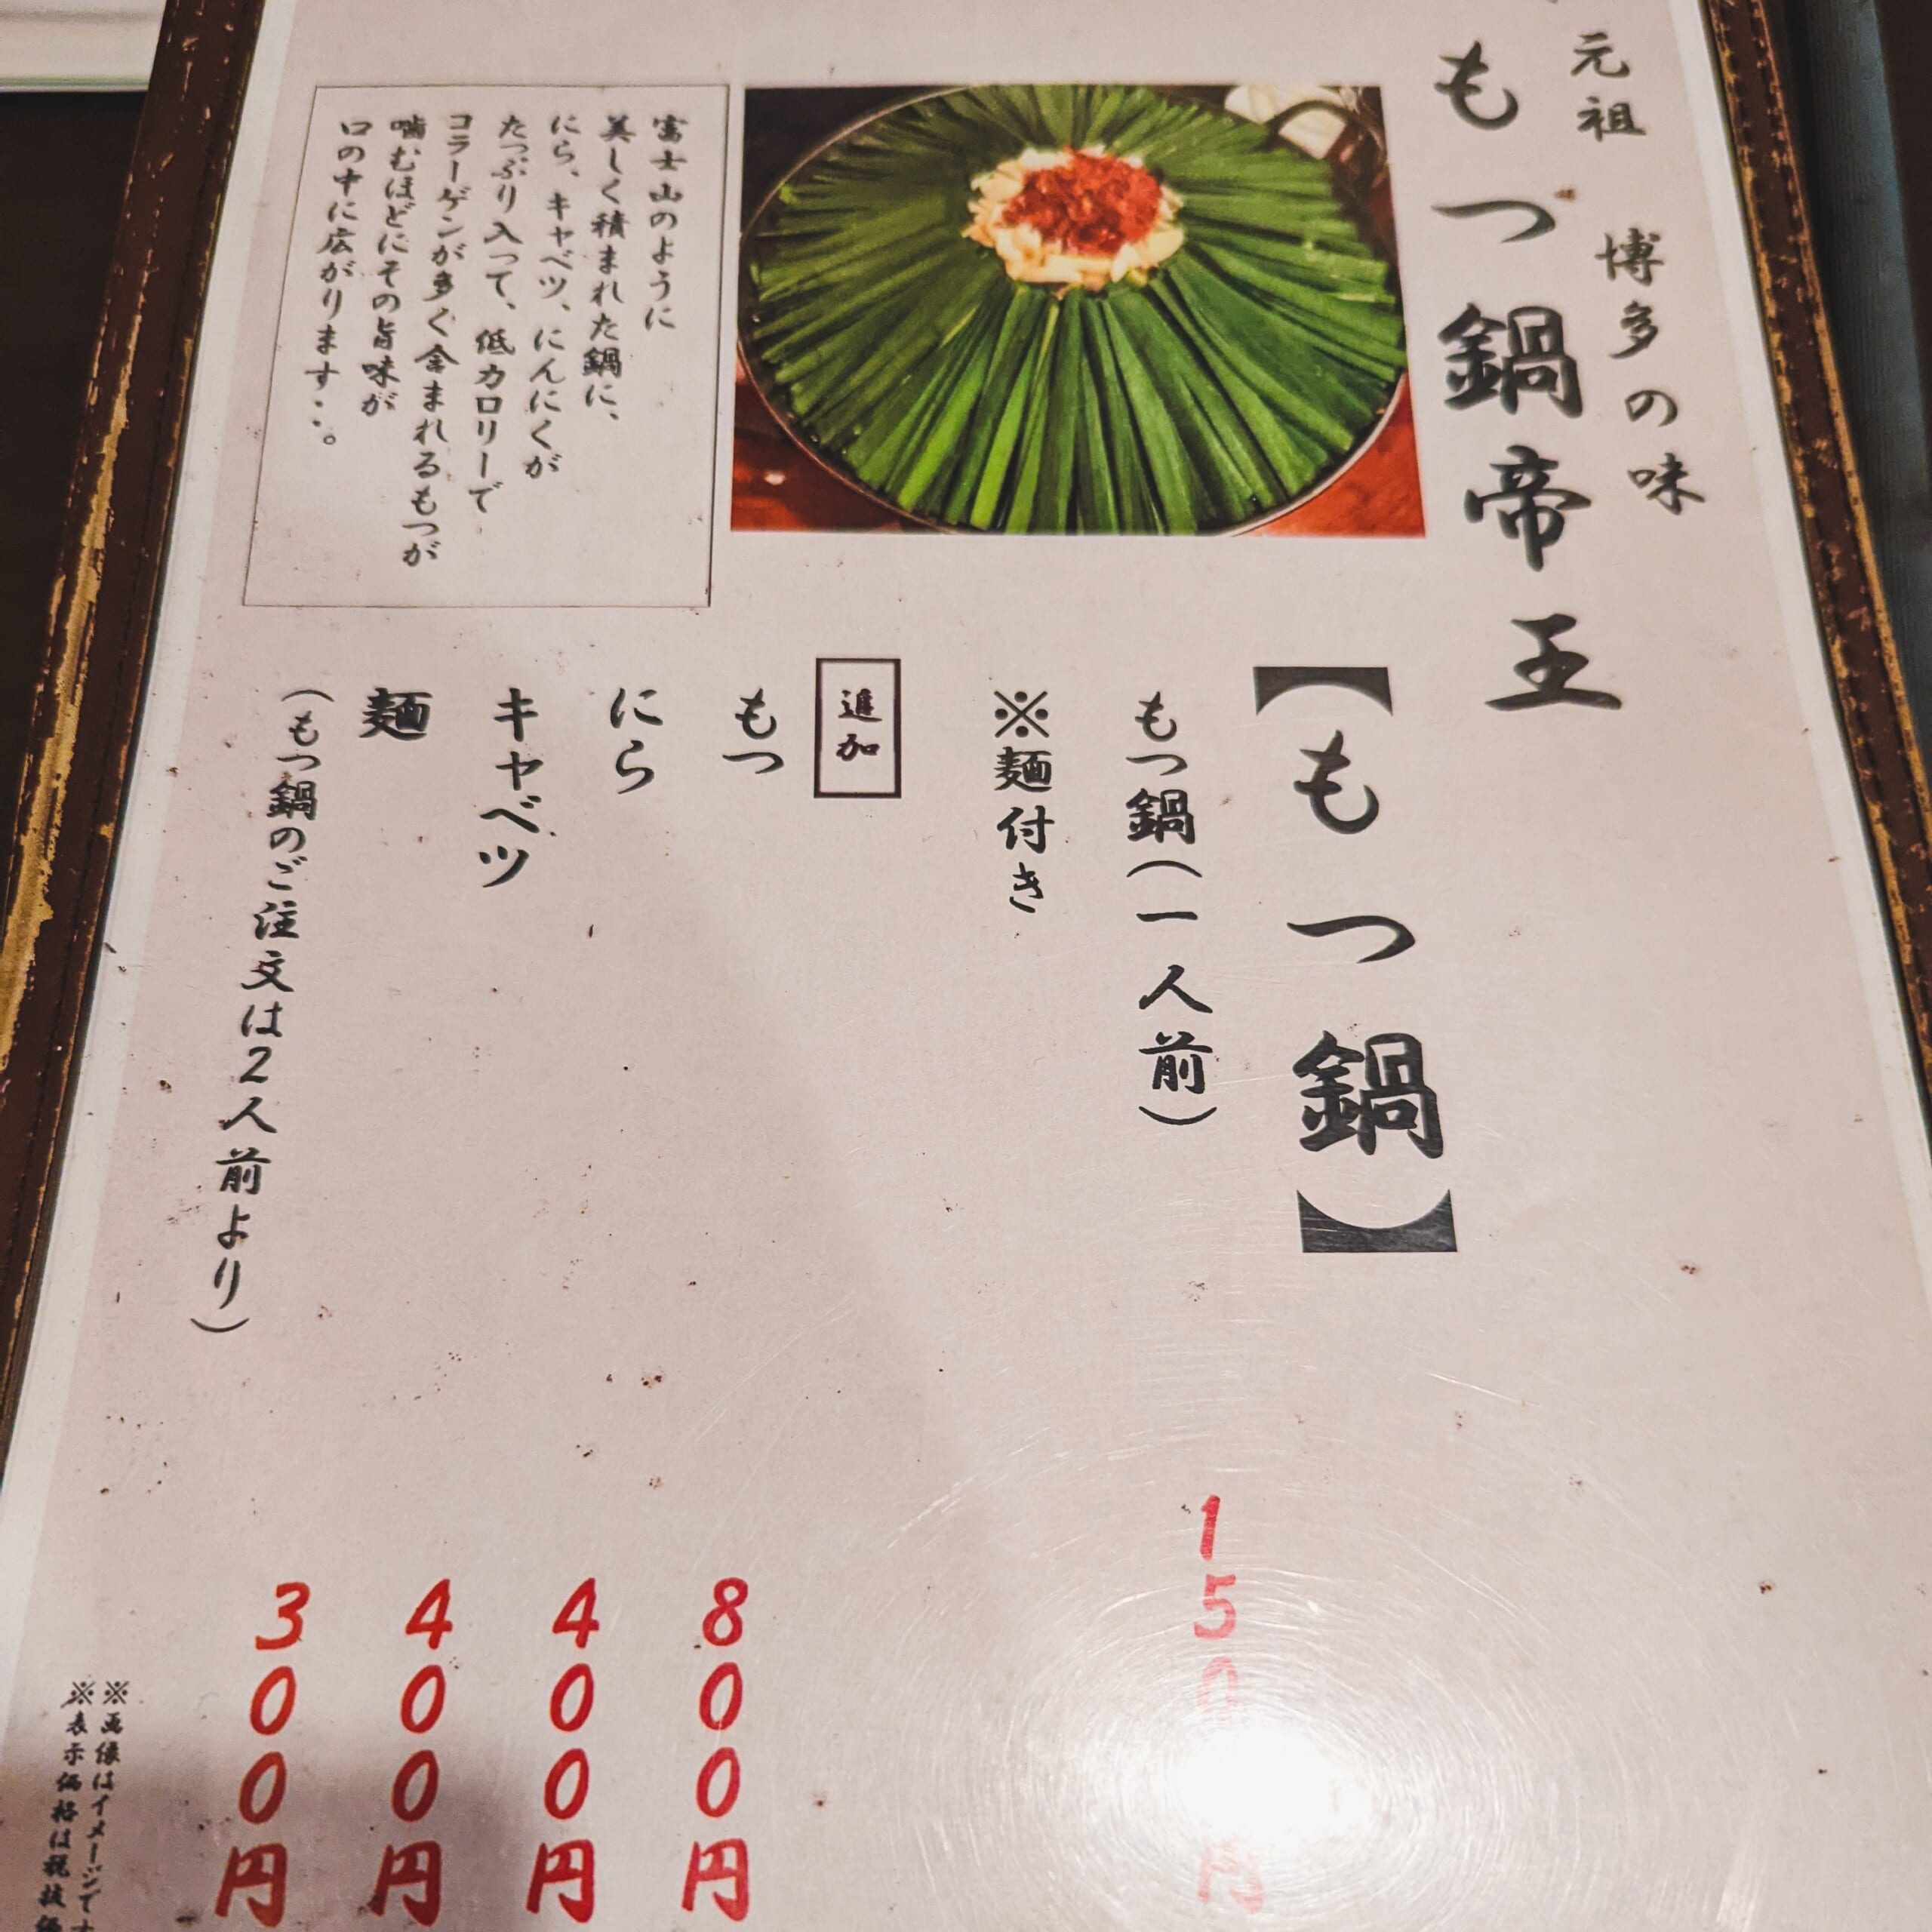 元祖 博多の味
もつ鍋帝王
富士山のように
美しく積まれた鍋に、
にら、キャベツ、にんにくが
たっぷり入って、低カロリーで
コラーゲンが多く含まれるもつが
噛むほどにその旨味が
口の中に広がります・・。
【もつ鍋】
もつ鍋(一人前) 150 円
※麺付き
追加
もつ 800円
にら 400円
キャベツ 400円
麺 300円
(もつ鍋のご注文は2人前より)
※画像はイメージです
※表示価格は税抜価